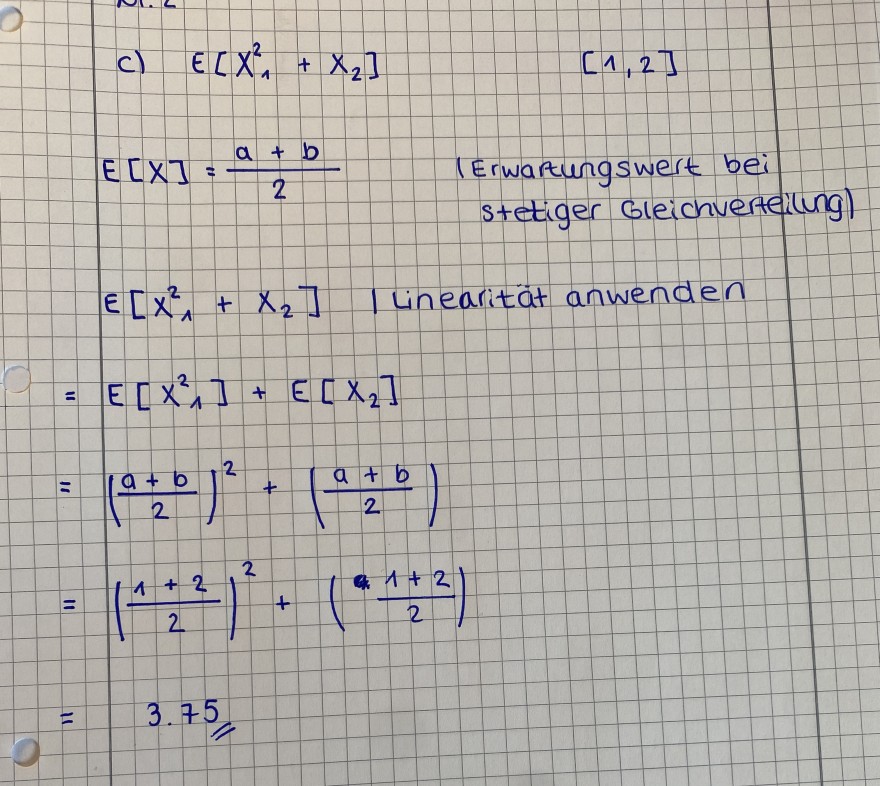 c) E[X²₁ + X₂] [1,2]
E[X] = (a + b)/2 (Erwartungswert bei
stetiger Gleichverteilung)
E[X²₁ + X₂] | Linearität anwenden
= E[X²₁] + E[X₂]
= ((a + b)/2)² + ((a + b)/2)
= ((1 + 2)/2)² + ((1 + 2)/2)
= 3.75